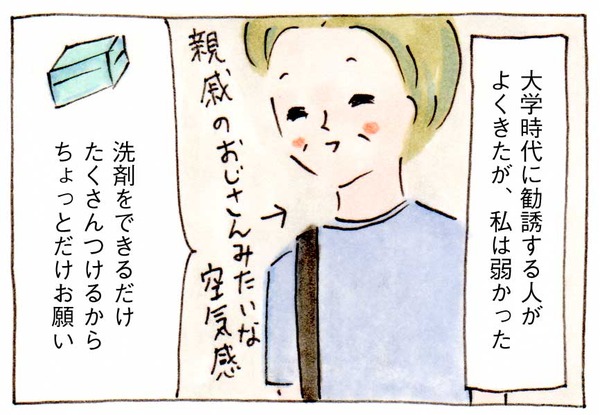 大学時代に勧誘する人が
よくきたが、私は弱かった
親戚のおじさんみたいな
空気感
洗剤をできるだけ
たくさんつけるから
ちょっとだけお願い